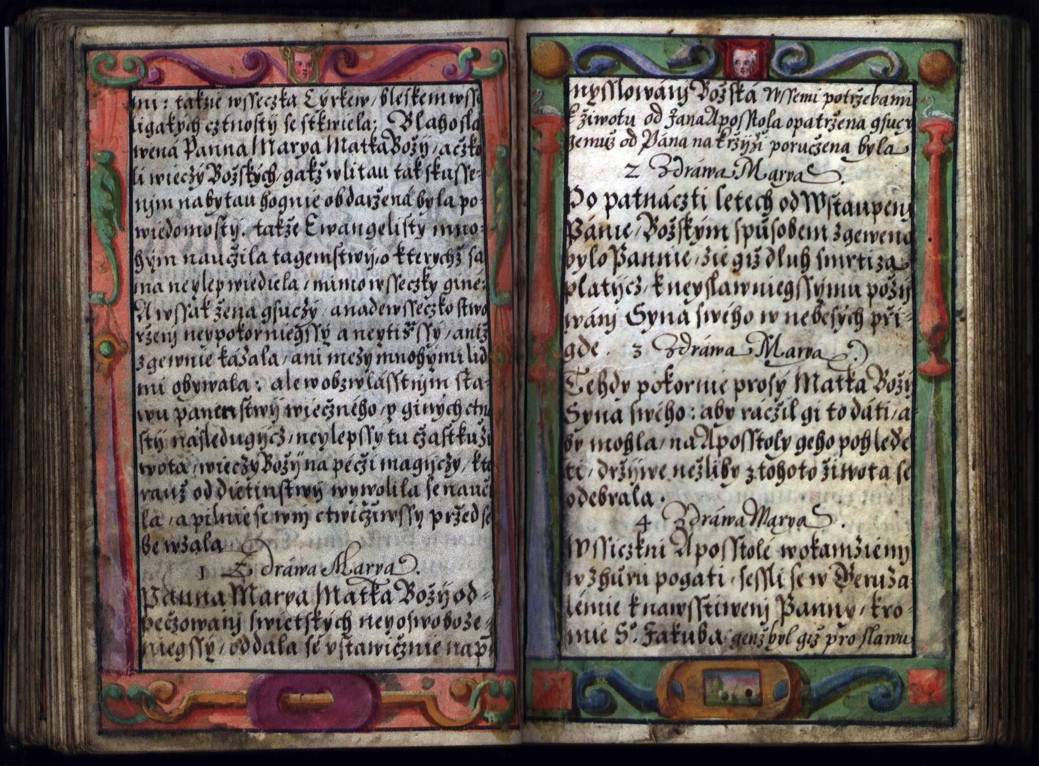 mi: takže wsseczka Cyrkew, bleskem wsse
ligakych cztnosty se stkwiela: Blahosla
wená Panna Marya Matka Božy, aczko
li wieczy Božských, gakž wlitau tak skusse-
ným nabytau hognie obdařená byla po-
wiedomosty. takže Ewangelisty mno-
hým naučila tagemstwy, o kterychž sa
ma neylep wiediela, mimo wsseczky gine:
A wssak žena gsuczy, a nadewsseczko stwo
ržený neypokorniegssy a neytissy, aniž
zgewnie kázala, ani mezy mnohymi lid
mi obywala: ale w obzwlásstnym sta-
wu panenstwy wieczného, y giných ctno
sty následugycz, neylepssy tu częstku ži
wota, wieczy Božy na péczi magyczy, kte
rauž od dietinstwy wywolila se nauči
la, a pilnie se wny ctwicziwssy pržed se
be wzala
1 Zdráwa Marya.
Panna Marya Matka Božy od-
peczowaný swietských neyoswobože-
niegssy, oddala se vstawicznie na př
mysslowáný Božská wssemi potržebami
k žiwotu od Jana Aposstola opatržena gsucy
gemuž od Pána na kržyži poručena byla
2 Zdráwa Marya.
Po patnáczti letech od Wstaupený
Pánie, Božským spůsobem zgeweno
bylo Pannie, že giž dluh smrti za
platycz, k neyslawniegssymu požy
wáný Syna swého w nebesých při
gde. 3 Zdráwa Marya
Tehdy pokornie prosy Matka Božy
Syna swého: aby ráczil gi to dáti, a-
by mohla, na Aposstoly geho pohlede
ti, držýwe nežliby z tohoto žiwota se
odebrala.
4 Zdráwa Marya.
Wssiczkni Aposstole w okamžieny
w zhůru pogati, sessli se w Geruza
lémie k nawsstiwený Panny, kro-
mie S. Jakuba, genž byl giž pro slawu